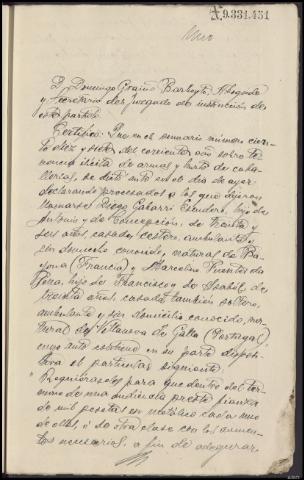 A.9.331.451
D. Domingo Graiño Barboyto, Abogado
y secretario del juzgado de instrucción de
este partido.
Certifico: Que en el sumario número cien-
to diez y siete del corriente año sobre te-
nencia ilícita de armas y hurto de caba-
llerias, se dictó auto en el dia de ayer
declarando procesados a los que dijeron
llamarse Diego Gabarri Escudero, hijo de
Antonio y de Concepción, de treinta y
seis años, casado, cestero, ambulante,
sin domicilio conocido, natural de Ba-
yona (Francia) y Marcelino Fuentes da
hijo de Francisco y de Isabel, de
treinta años, casado tambien
ambulante y sin domicilio conocido, na-
tural de Villanova de Galla (Portugal)
cuyo auto contiene en su parte disposi-
tiva el particular siguiente
"Requierase les para que dentro del ter-
mino de una audiencia preste fianza
de mil pesetas en metálico cada uno
de ellos, ó de otra clase con los aumen-
tos necesarios, a fin de asegurar